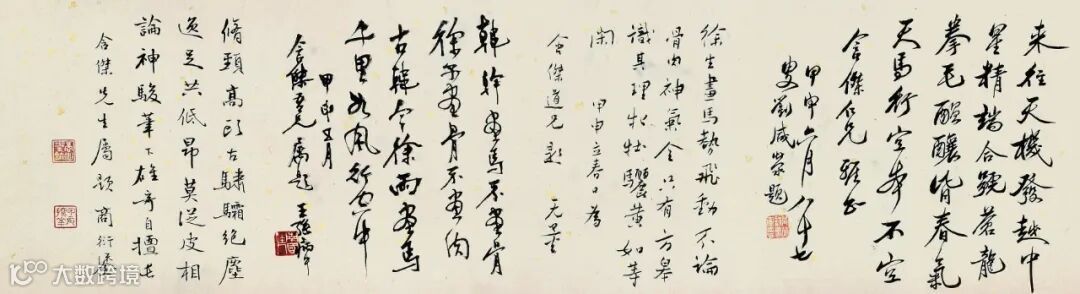 来往天機發越中
星精端合號蒼龍
拳毛酣釀皆春氣
天馬行空本不空
含傑仁兄雅正
甲申六月八十七
叟劉咸榮題
徐生畫馬勢飛動不論
骨肉神氣全只有方皋
識具理牝牡驪黃如等
閑 甲申立春日為
含傑道兄題
韓幹畫馬不畫骨
徐子畫骨不畫肉
古韓今徐兩畫馬
千里如風行空
甲申五月
含傑吾兄屬題
脩頸高頭古驌驦絕塵
逸足共低昂莫從皮相
論神駿筆下雄奇自擅長
含傑先生屬題 商衍鎏
大数跨境